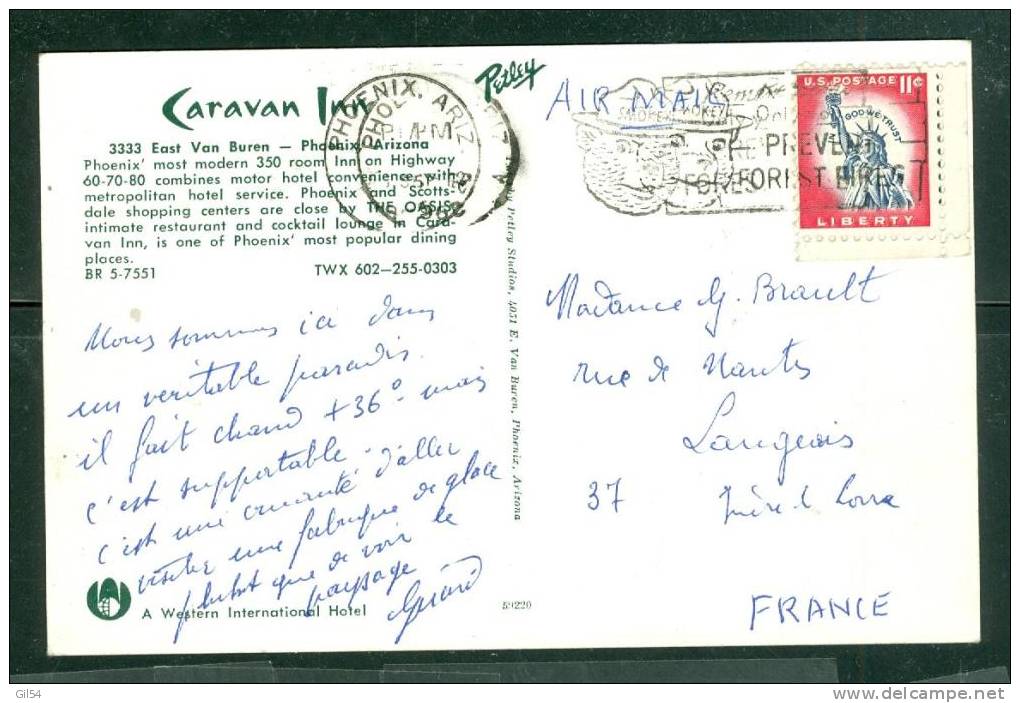 Caravan Inn
3333 East Van Buren — Phoenix, Arizona
Phoenix' most modern 350 room Inn on Highway
60-70-80 combines motor hotel convenience with
metropolitan hotel service. Phoenix and Scotts-
dale shopping centers are close by THE OASIS,
intimate restaurant and cocktail lounge in Cara-
van Inn, is one of Phoenix' most popular dining
places.
BR 5-7551 TWX 602—255-0303
Nous sommes ici dans
un veritable paradis.
il fait chaud +36° mais
c'est supportable.
c'est une cruauté d'aller
visiter une fabrique de glace
plutot que de voir le
paysage
Gérard
A Western International Hotel
Petley
Petley Studios, 4051 E. Van Buren, Phoenix, Arizona
59220
PHOENIX, ARIZ.
PM
AIR MAIL
SMOKEY
PREVENT
FOREST FIRES
U.S. POSTAGE 11¢
IN GOD WE TRUST
LIBERTY
Madame G. Brault
rue de Nantes
Langeais
37 Indre et Loire
FRANCE
Gil54
www.delcampe.net